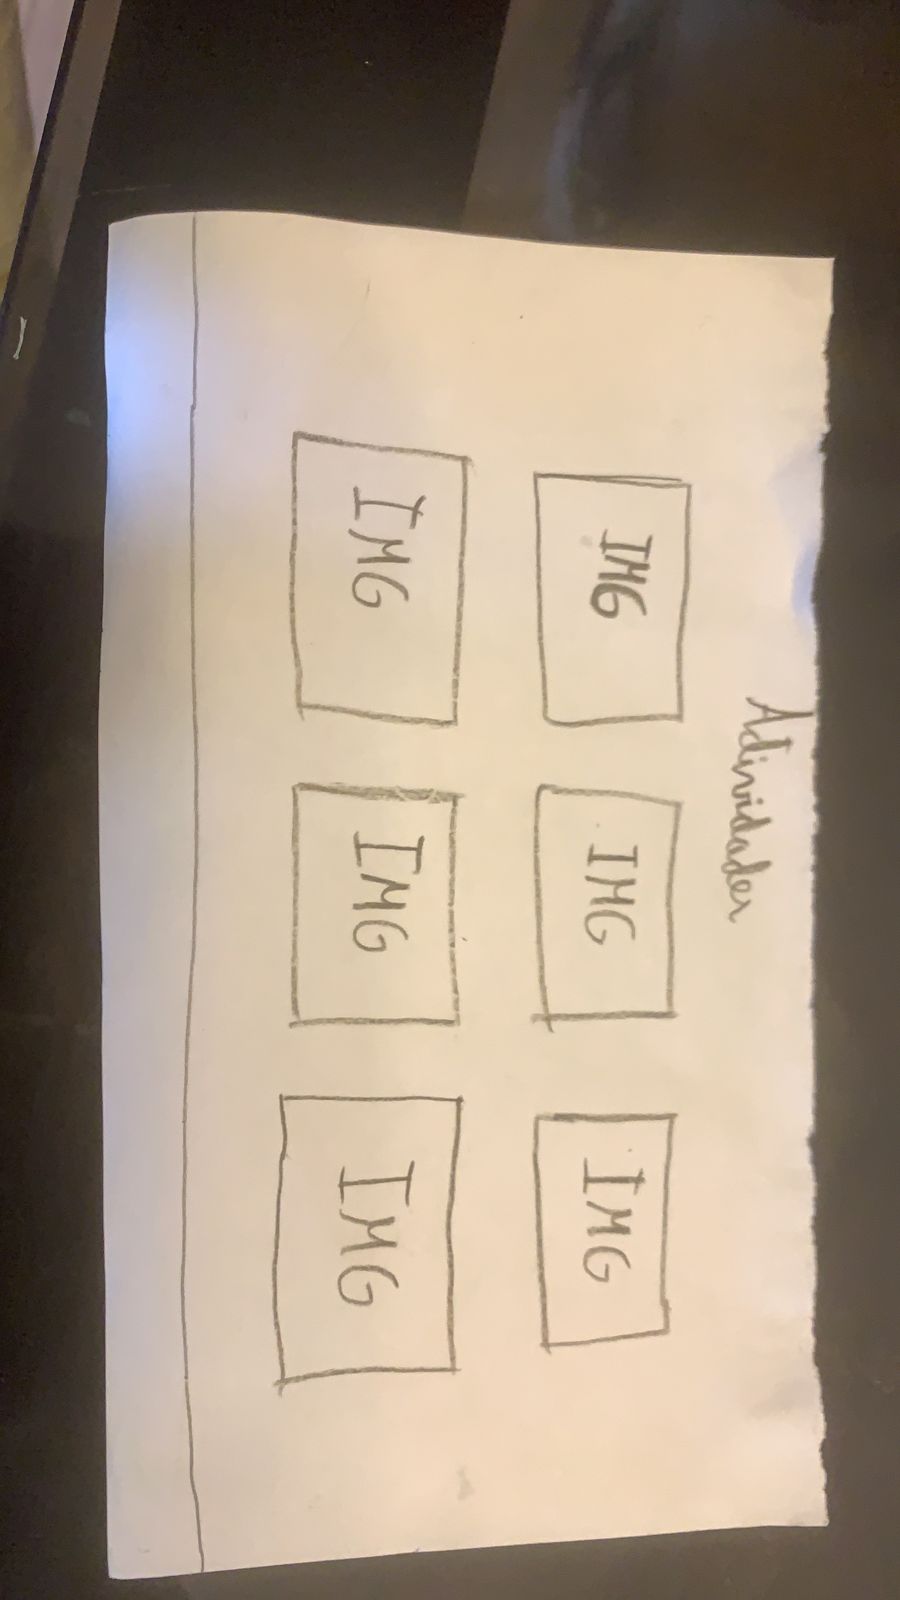 Actividades
IMG IMG IMG
IMG IMG IMG